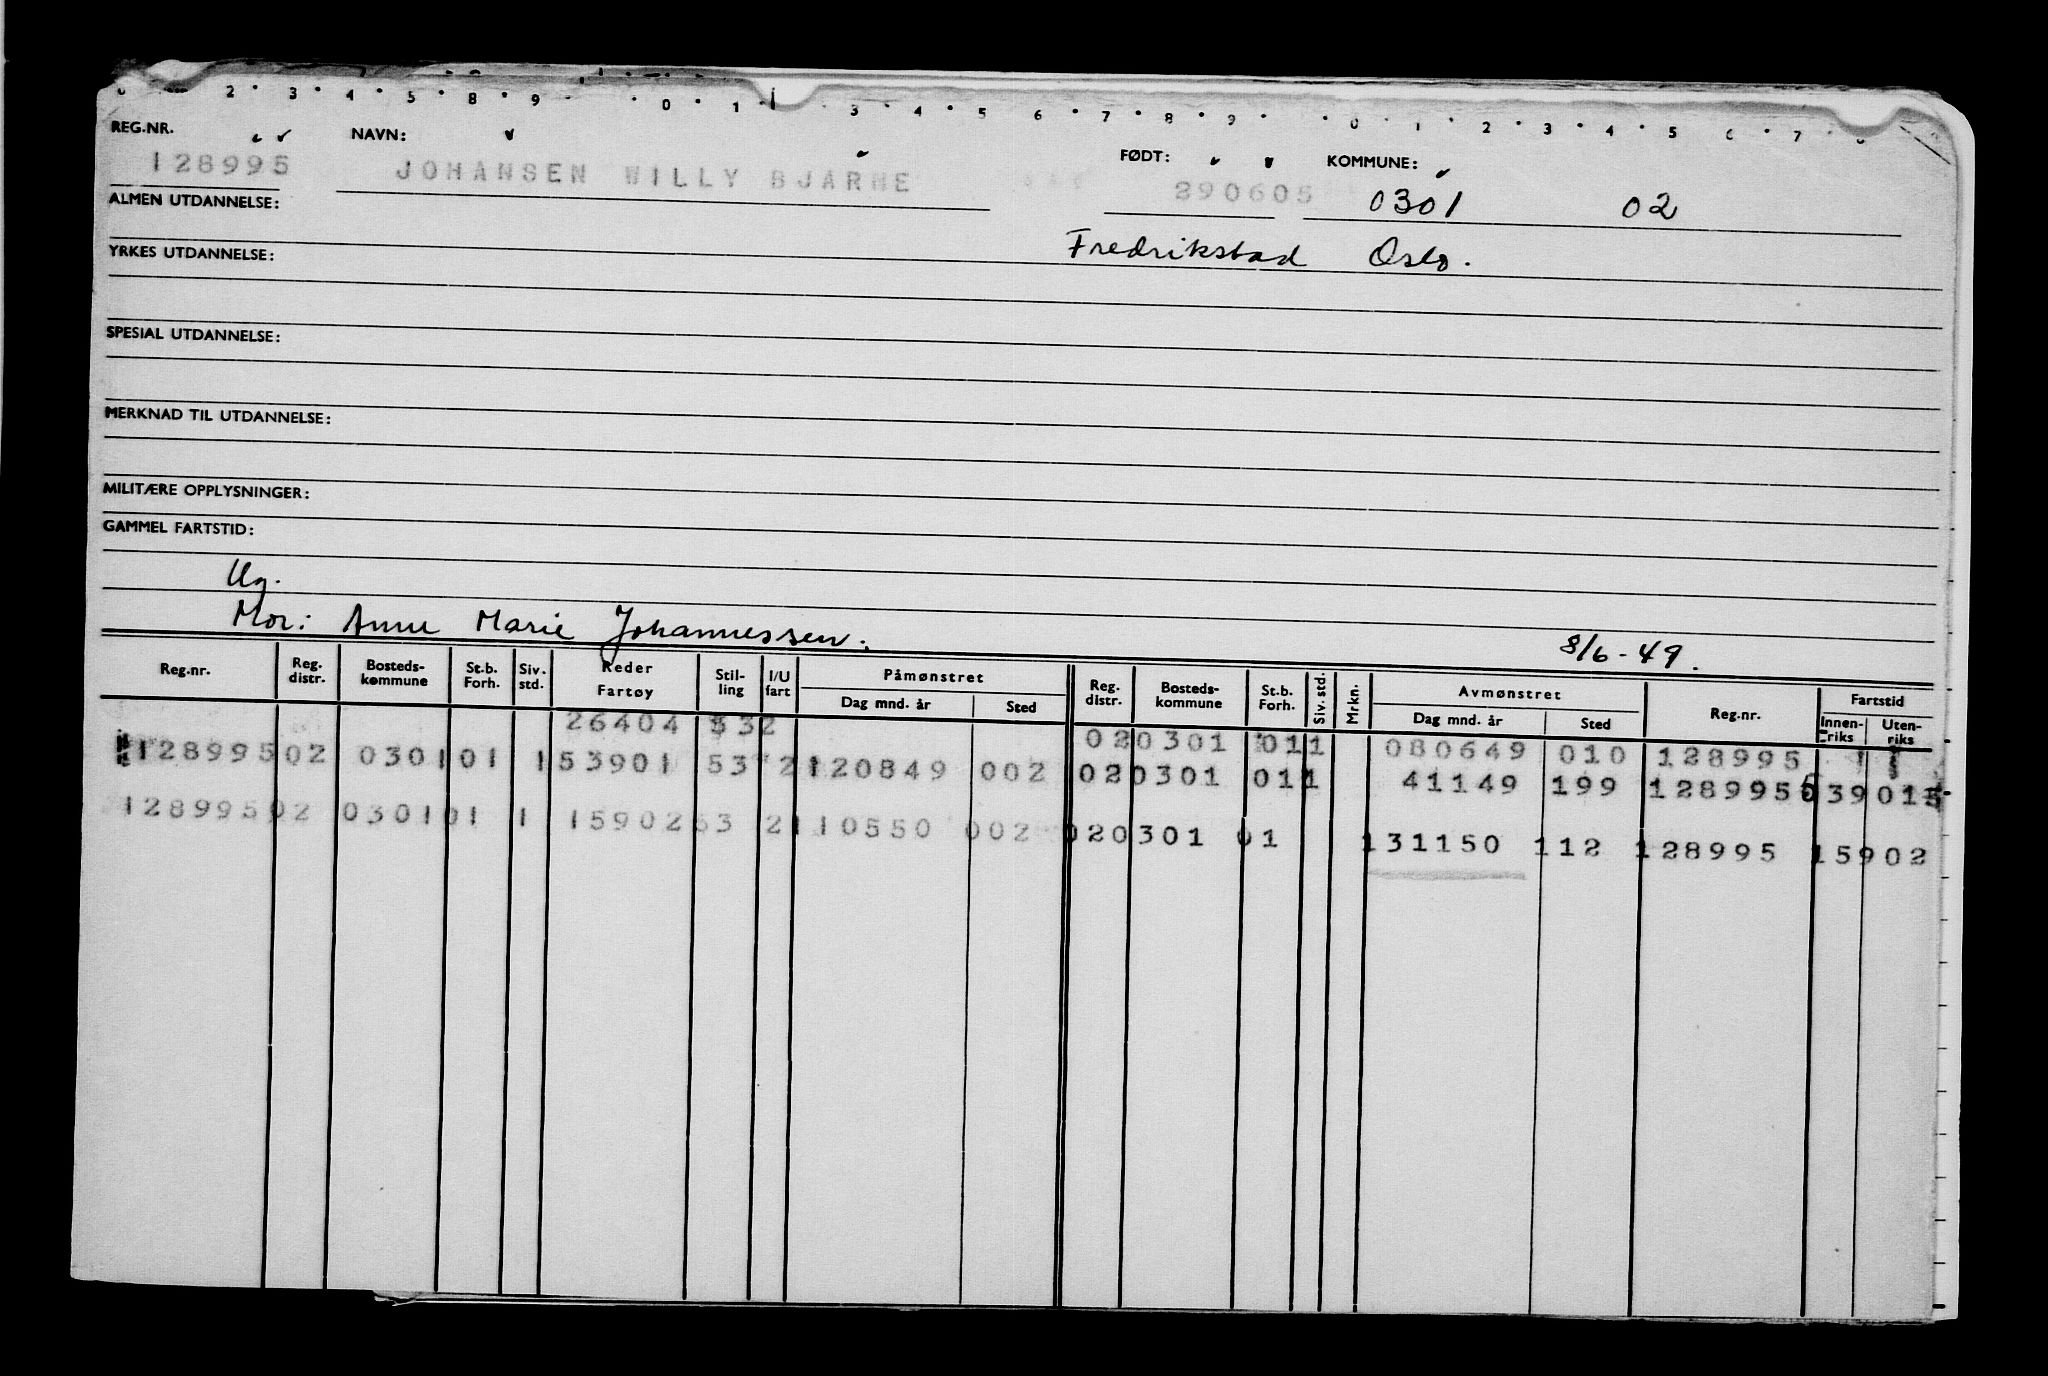 2 3 4 5 8 9 0 1 3 4 5 6 7 8 9 0 1 2 3 4 5 6 7
REG.NR. NAVN: FØDT: KOMMUNE:
128995 JOHANSEN WILLY BJARNE 290605 0301 02
ALMEN UTDANNELSE:
Fredrikstad Oslo.
YRKES UTDANNELSE:
SPESIAL UTDANNELSE:
MERKNAD TIL UTDANNELSE:
MILITÆRE OPPLYSNINGER:
GAMMEL FARTSTID:
Ug.
Mor: Anne Marie Johannessen. 8/6-49.
Reg.nr. Reg. distr. Bosteds-kommune St.b. Forh. Siv. std. Reder Fartøy Stil-ling I/U fart Påmønstret Dag mnd. år Sted Reg. distr. Bosteds-kommune St.b. Forh. Siv. std. Mrkn. Avmønstret Dag mnd. år Sted Reg.nr. Fartstid Innen-riks Uten-riks
26404 532 020301 011 080649 010 128995
128995 02 0301 01 1 53901 53 2 120849 002 020301 011 41149 199 128995 53901
128995 02 0301 01 1 15902 53 2 110550 002 020301 01 131150 112 128995 15902